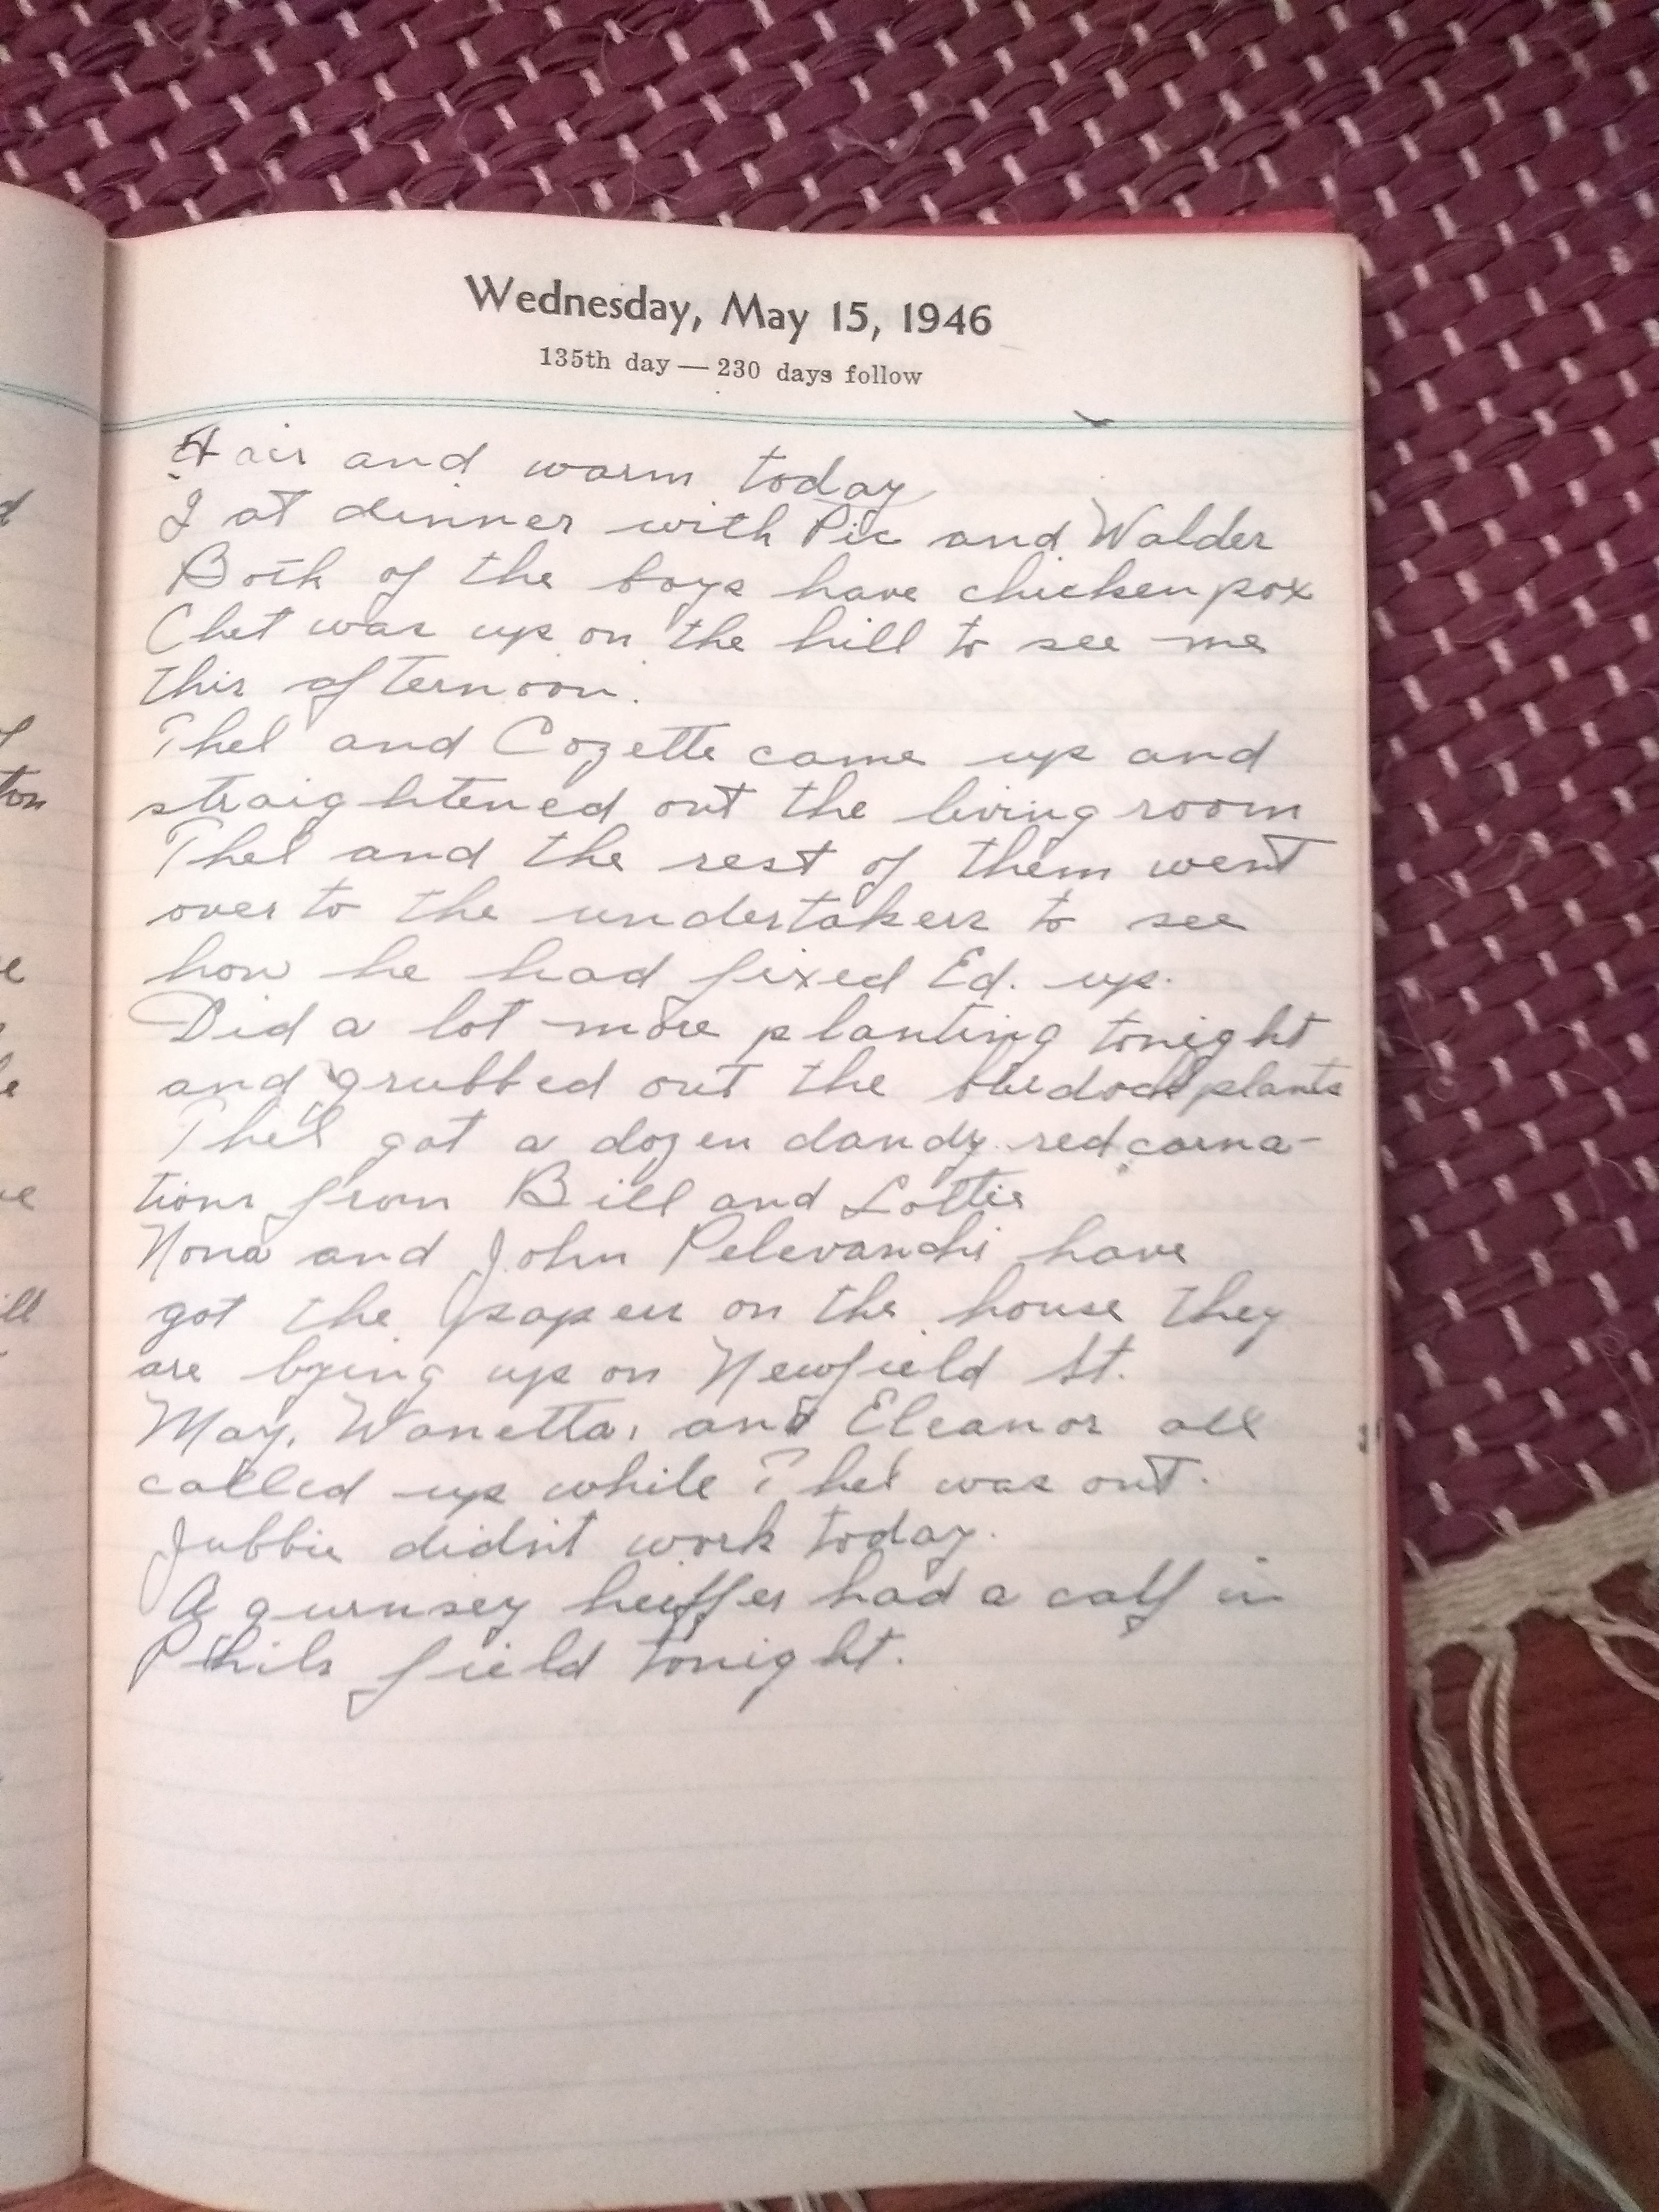 Wednesday, May 15, 1946
135th day — 230 days follow
Fair and warm today
I at dinner with Pic and Walder
Both of the boys have chicken pox
Chet was up on the hill to see me
this afternoon.
Thel and Cozette came up and
straightened out the living room
Thel and the rest of them went
over to the undertakers to see
how he had fixed Ed. up.
Did a lot more planting tonight
and grubbed out the plants
Thel got a dozen dandy red carna-
tions from Bill and Lottie
Nona and John have
got the papers on the house they
are bying up on Newfield St.
May, Wanetta, and Eleanor all
called up while Thel was out.
Jubbie didn't work today.
A gurnsey heiffer had a calf in
Phils field tonight.
ton
ill